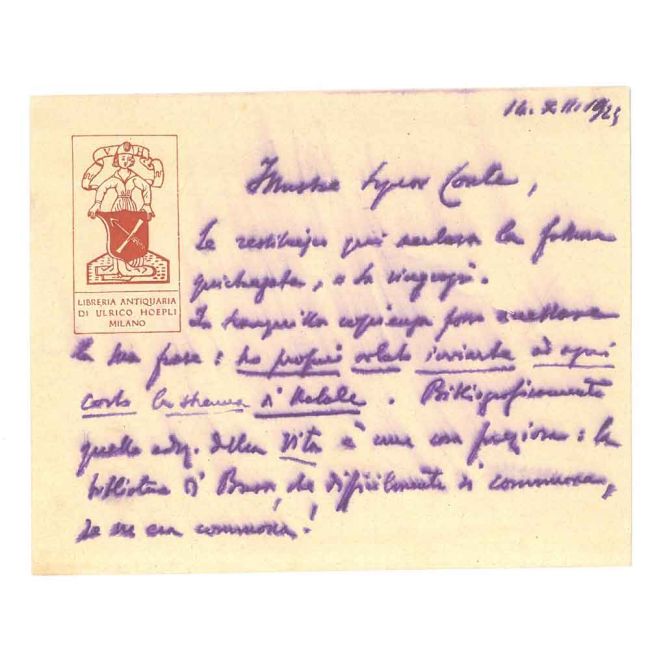 14. XII. 1925
V H
LIBRERIA ANTIQUARIA
DI ULRICO HOEPLI
MILANO
Illustre Signor Conte,
Le restituisco qui acclusa la fattura
quietanzata, e La ringrazio.
In tranquilla coscienza posso
la sua frase: ho proprio voluto inviarla ad ogni
costo la strenna di Natale. Bibliograficamente
quella ediz. della Vita è una cosa preziosa: la
biblioteca di Brera, che difficilmente si commuova,
se ne era commossa!